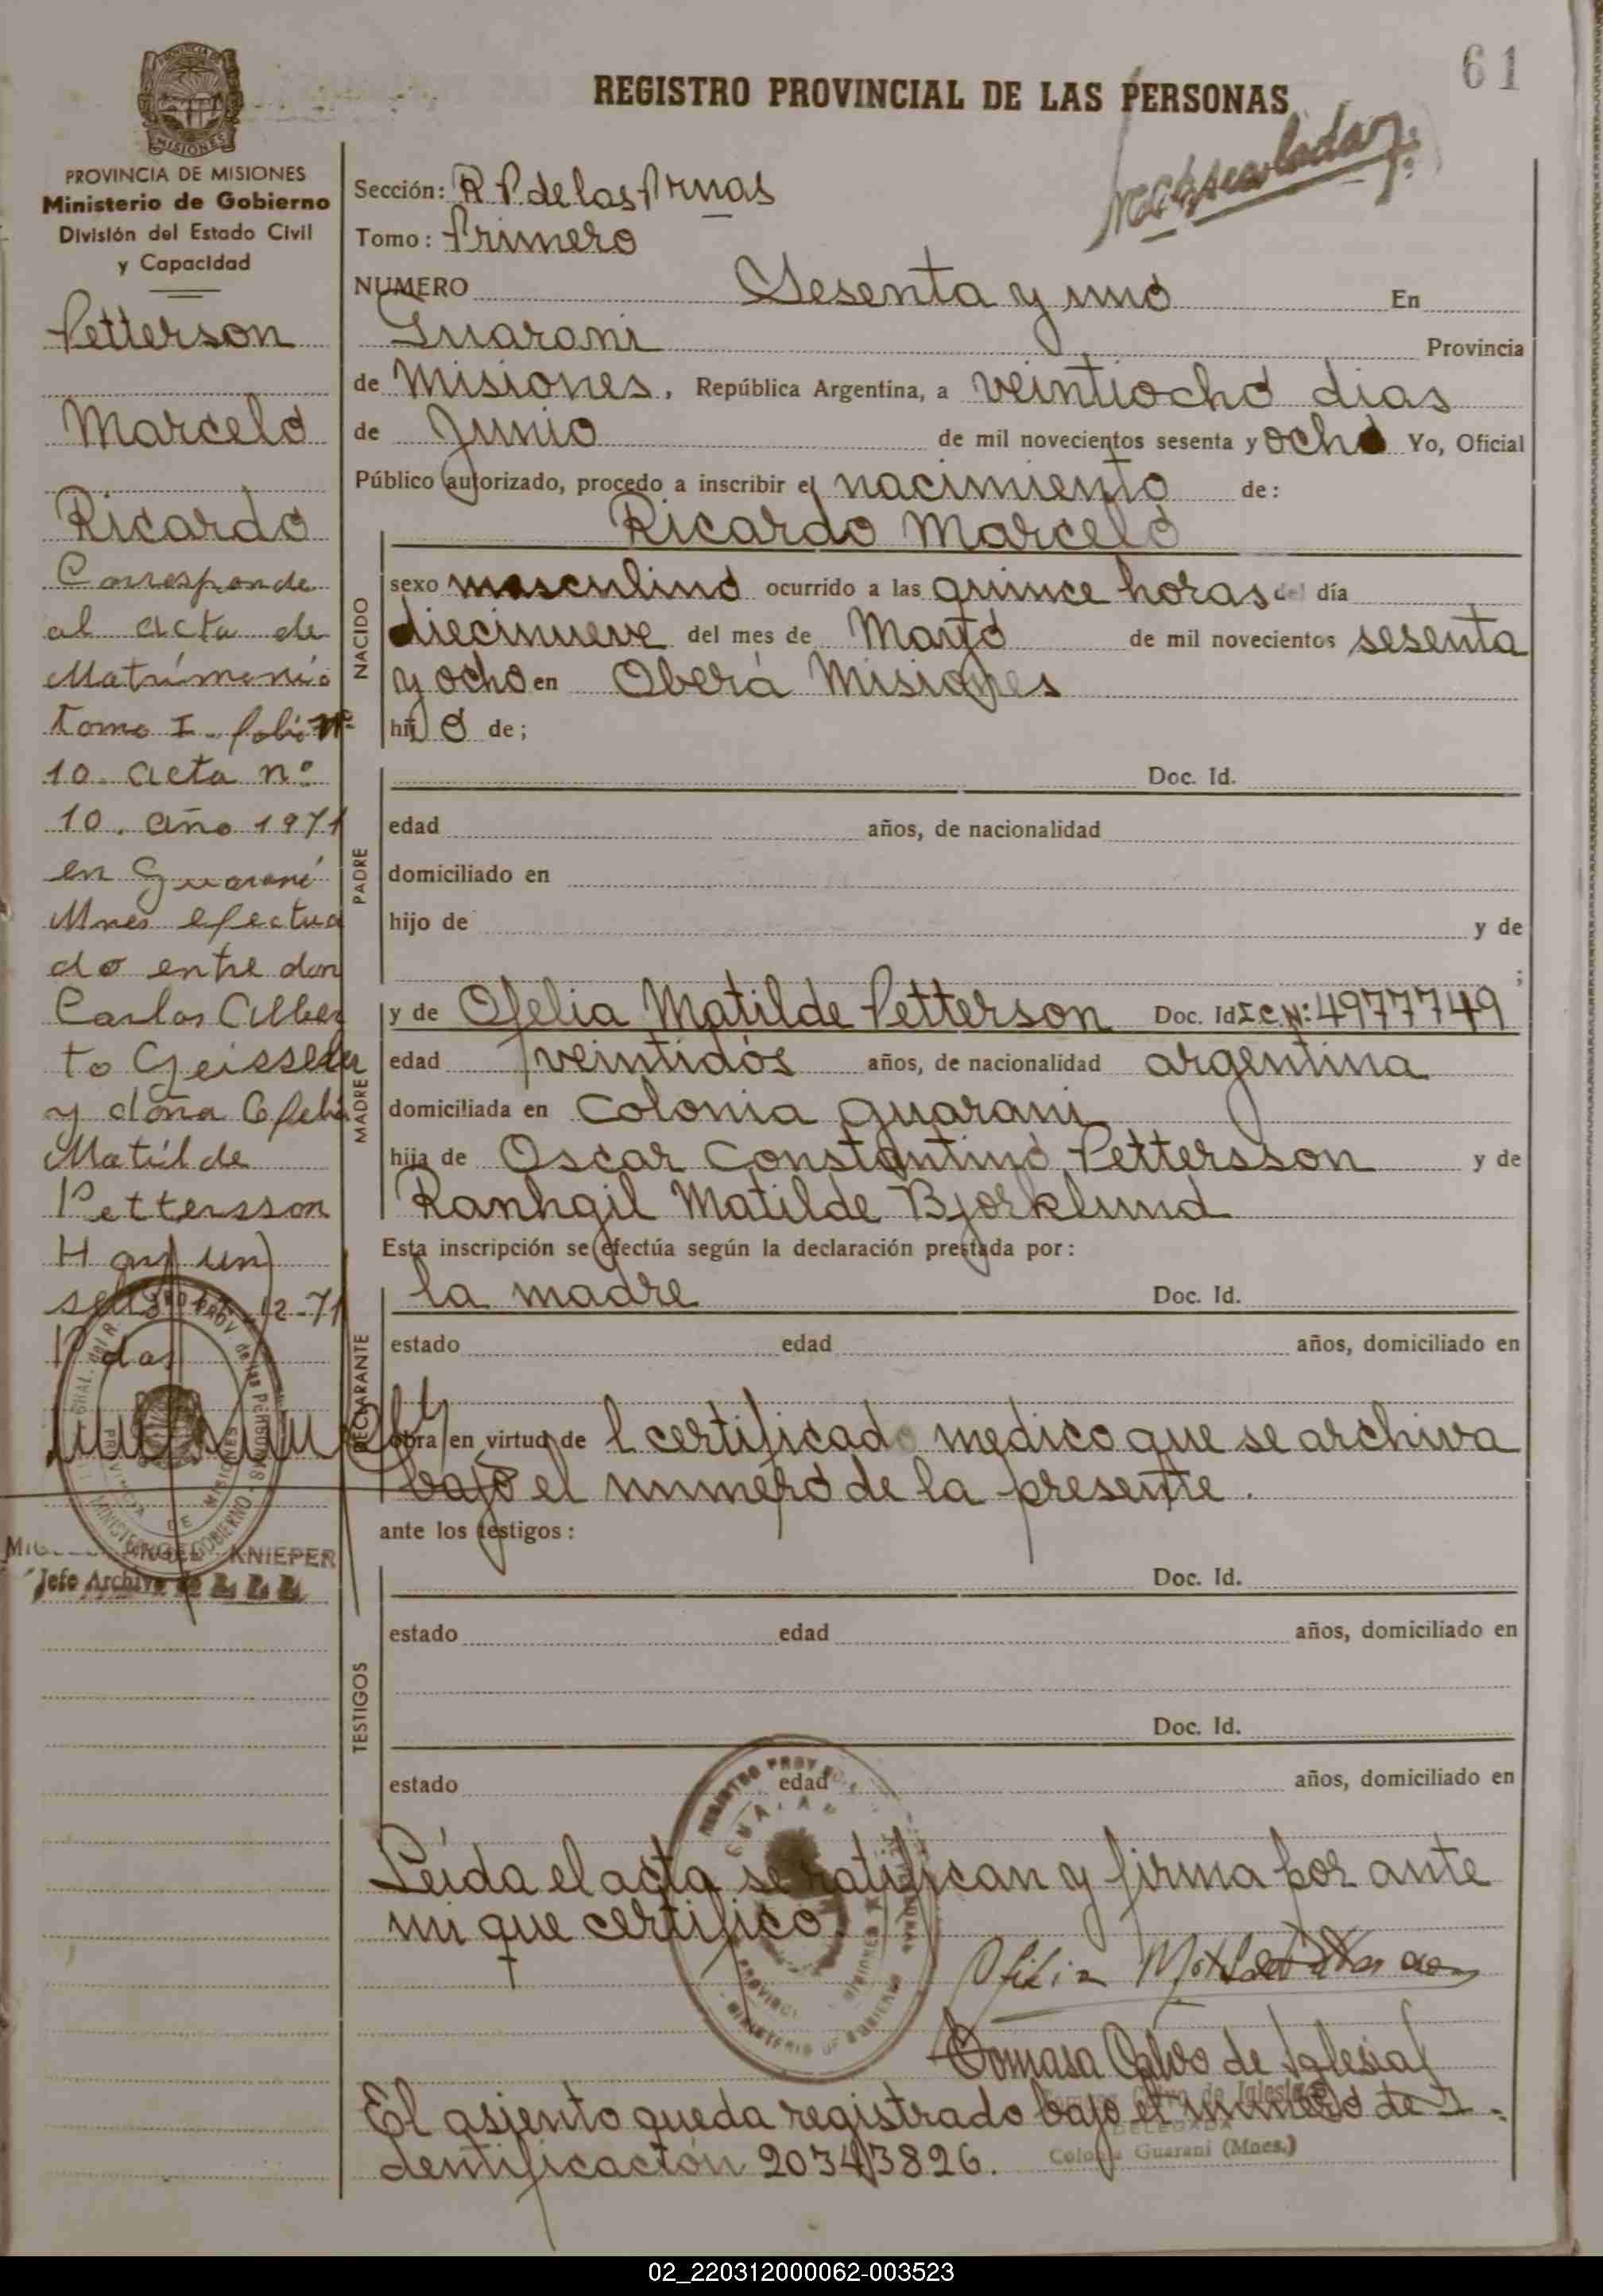 61
REGISTRO PROVINCIAL DE LAS PERSONAS
MISIONES
PROVINCIA DE MISIONES
Ministerio de Gobierno
División del Estado Civil
y Capacidad
Petterson
Marcelo
Ricardo
Corresponde
al acta de
Matrimonio
tomo I - folio Nº
10 - acta nº
10. año 1971
en Guaraní
Mnes efectua
do entre don
Carlos Alber
to Geisseler
y doña Ofelia
Matilde
Pettersson
Hay un
12-71
Pdas
KNIEPER
Jefe Archivo
Sección: R P. de las Prnas
Tomo: Primero
NUMERO Sesenta y uno En
Guarani Provincia
de Misiones, República Argentina, a veintiocho dias
de Junio de mil novecientos sesenta y ocho Yo, Oficial
Público autorizado, procedo a inscribir el nacimiento de:
Ricardo Marcelo
NACIDO
sexo masculino ocurrido a las quince horas del día
diecinueve del mes de Marzo de mil novecientos sesenta
y ocho en Oberá Misiones
hijo de;
PADRE
Doc. Id.
edad años, de nacionalidad
domiciliado en
hijo de y de
;
MADRE
y de Ofelia Matilde Petterson Doc. Id I.C.N: 4977749
edad veintidos años, de nacionalidad argentina
domiciliada en Colonia guarani
hija de Oscar Constantino Pettersson y de
Ranhgil Matilde Bjorklund
Esta inscripción se efectúa según la declaración prestada por:
DECLARANTE
la madre Doc. Id.
estado edad años, domiciliado en
obra en virtud de l certificado medico que se archiva
bajo el numero de la presente.
ante los testigos:
TESTIGOS
Doc. Id.
estado edad años, domiciliado en
Doc. Id.
estado edad años, domiciliado en
Leída el acta se ratifican y firma por ante
mi que certifico
Tomasa Calvo de Iglesias
El asiento queda registrado bajo el numero de I-
dentificación 20343826.
DELEGADA
Colonia Guarani (Mnes.)
02_220312000062-003523